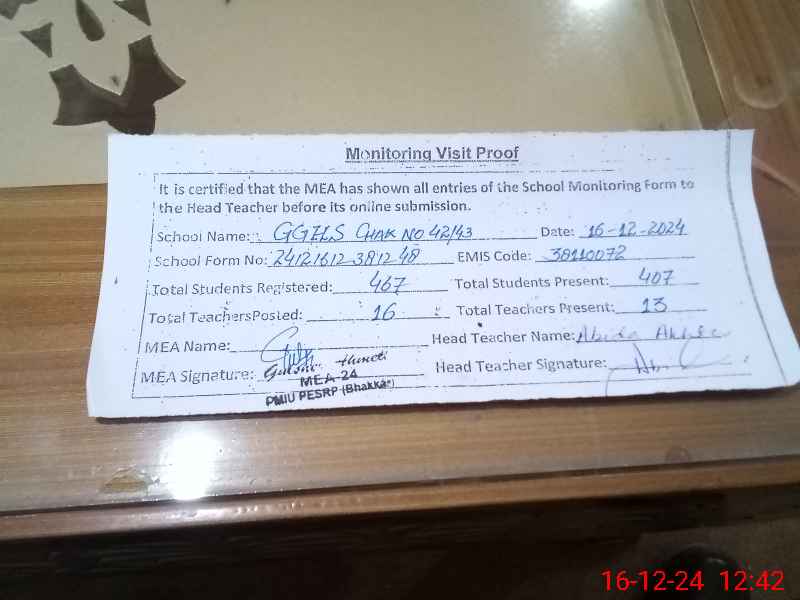 Monitoring Visit Proof
It is certified that the MEA has shown all entries of the School Monitoring Form to
the Head Teacher before its online submission.
School Name: GGELS CHAK NO 42/43 Date: 16-12-2024
School Form No: 24121612 3812 48 EMIS Code: 38110072
Total Students Registered: 467 Total Students Present: 407
Total TeachersPosted: 16 Total Teachers Present: 13
MEA Name: Head Teacher Name: Abida
MEA Signature: Head Teacher Signature:
MEA-24
PMIU PESRP (Bhakkar)
16-12-24 12:42